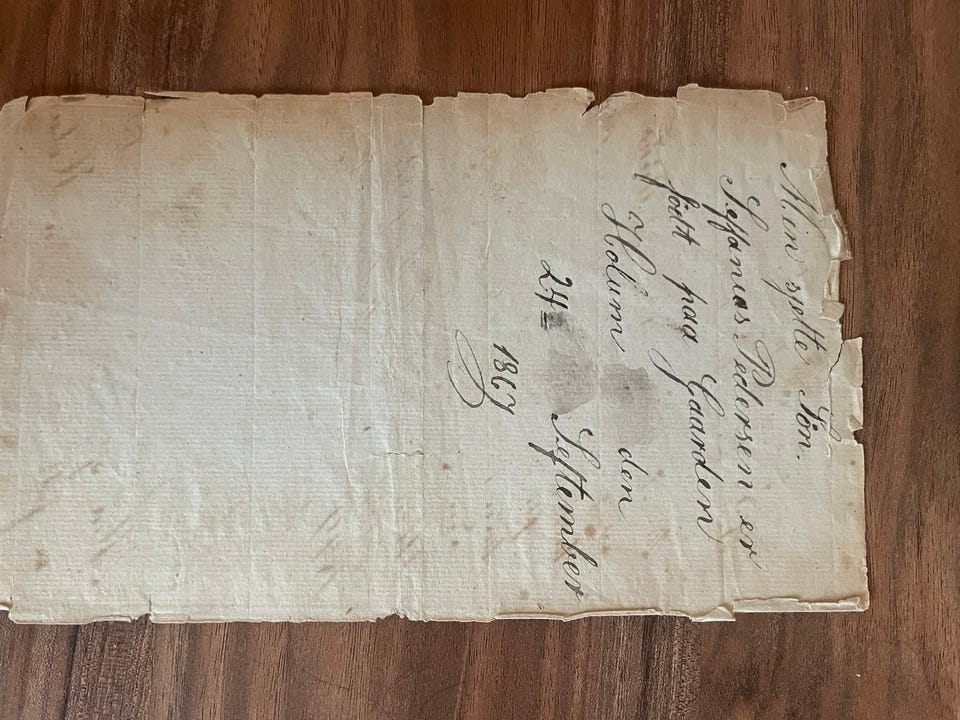 Min sjette Søn.
Seffanias Pedersen er
født paa Gaarden
Holum den
24 September
1867